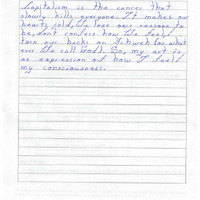 Capitalism is the cancer that
slowly kills everyone. It makes our
hearts cold, we lose our reasons to
be, don't confess how we feel,
turn our backs on Yahweh (or what
ever we call God). So, my art is
an expression of how I feel
my consciousness.